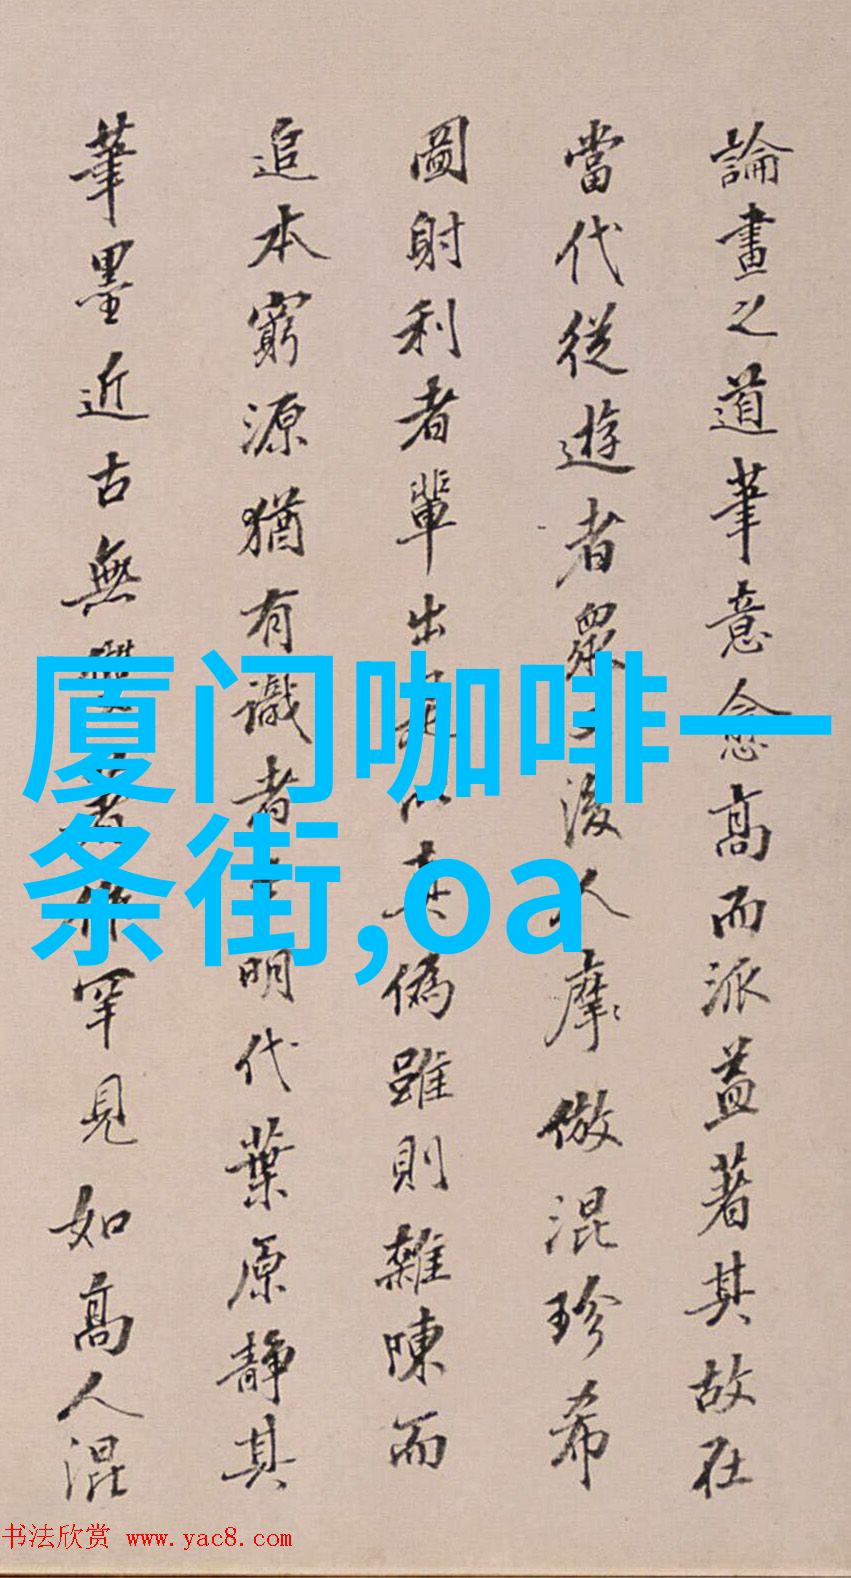 論畫之道筆意愈高而派益著其故在
當代從遊者眾後人摩倣混珍希
圖射利者輩出是以真偽雖則雜陳而
追本窮源猶有識者明代葉原靜其
筆墨近古無罕見如高人混
厦门咖啡一
条街,oa
书法欣赏 www.yac8.com